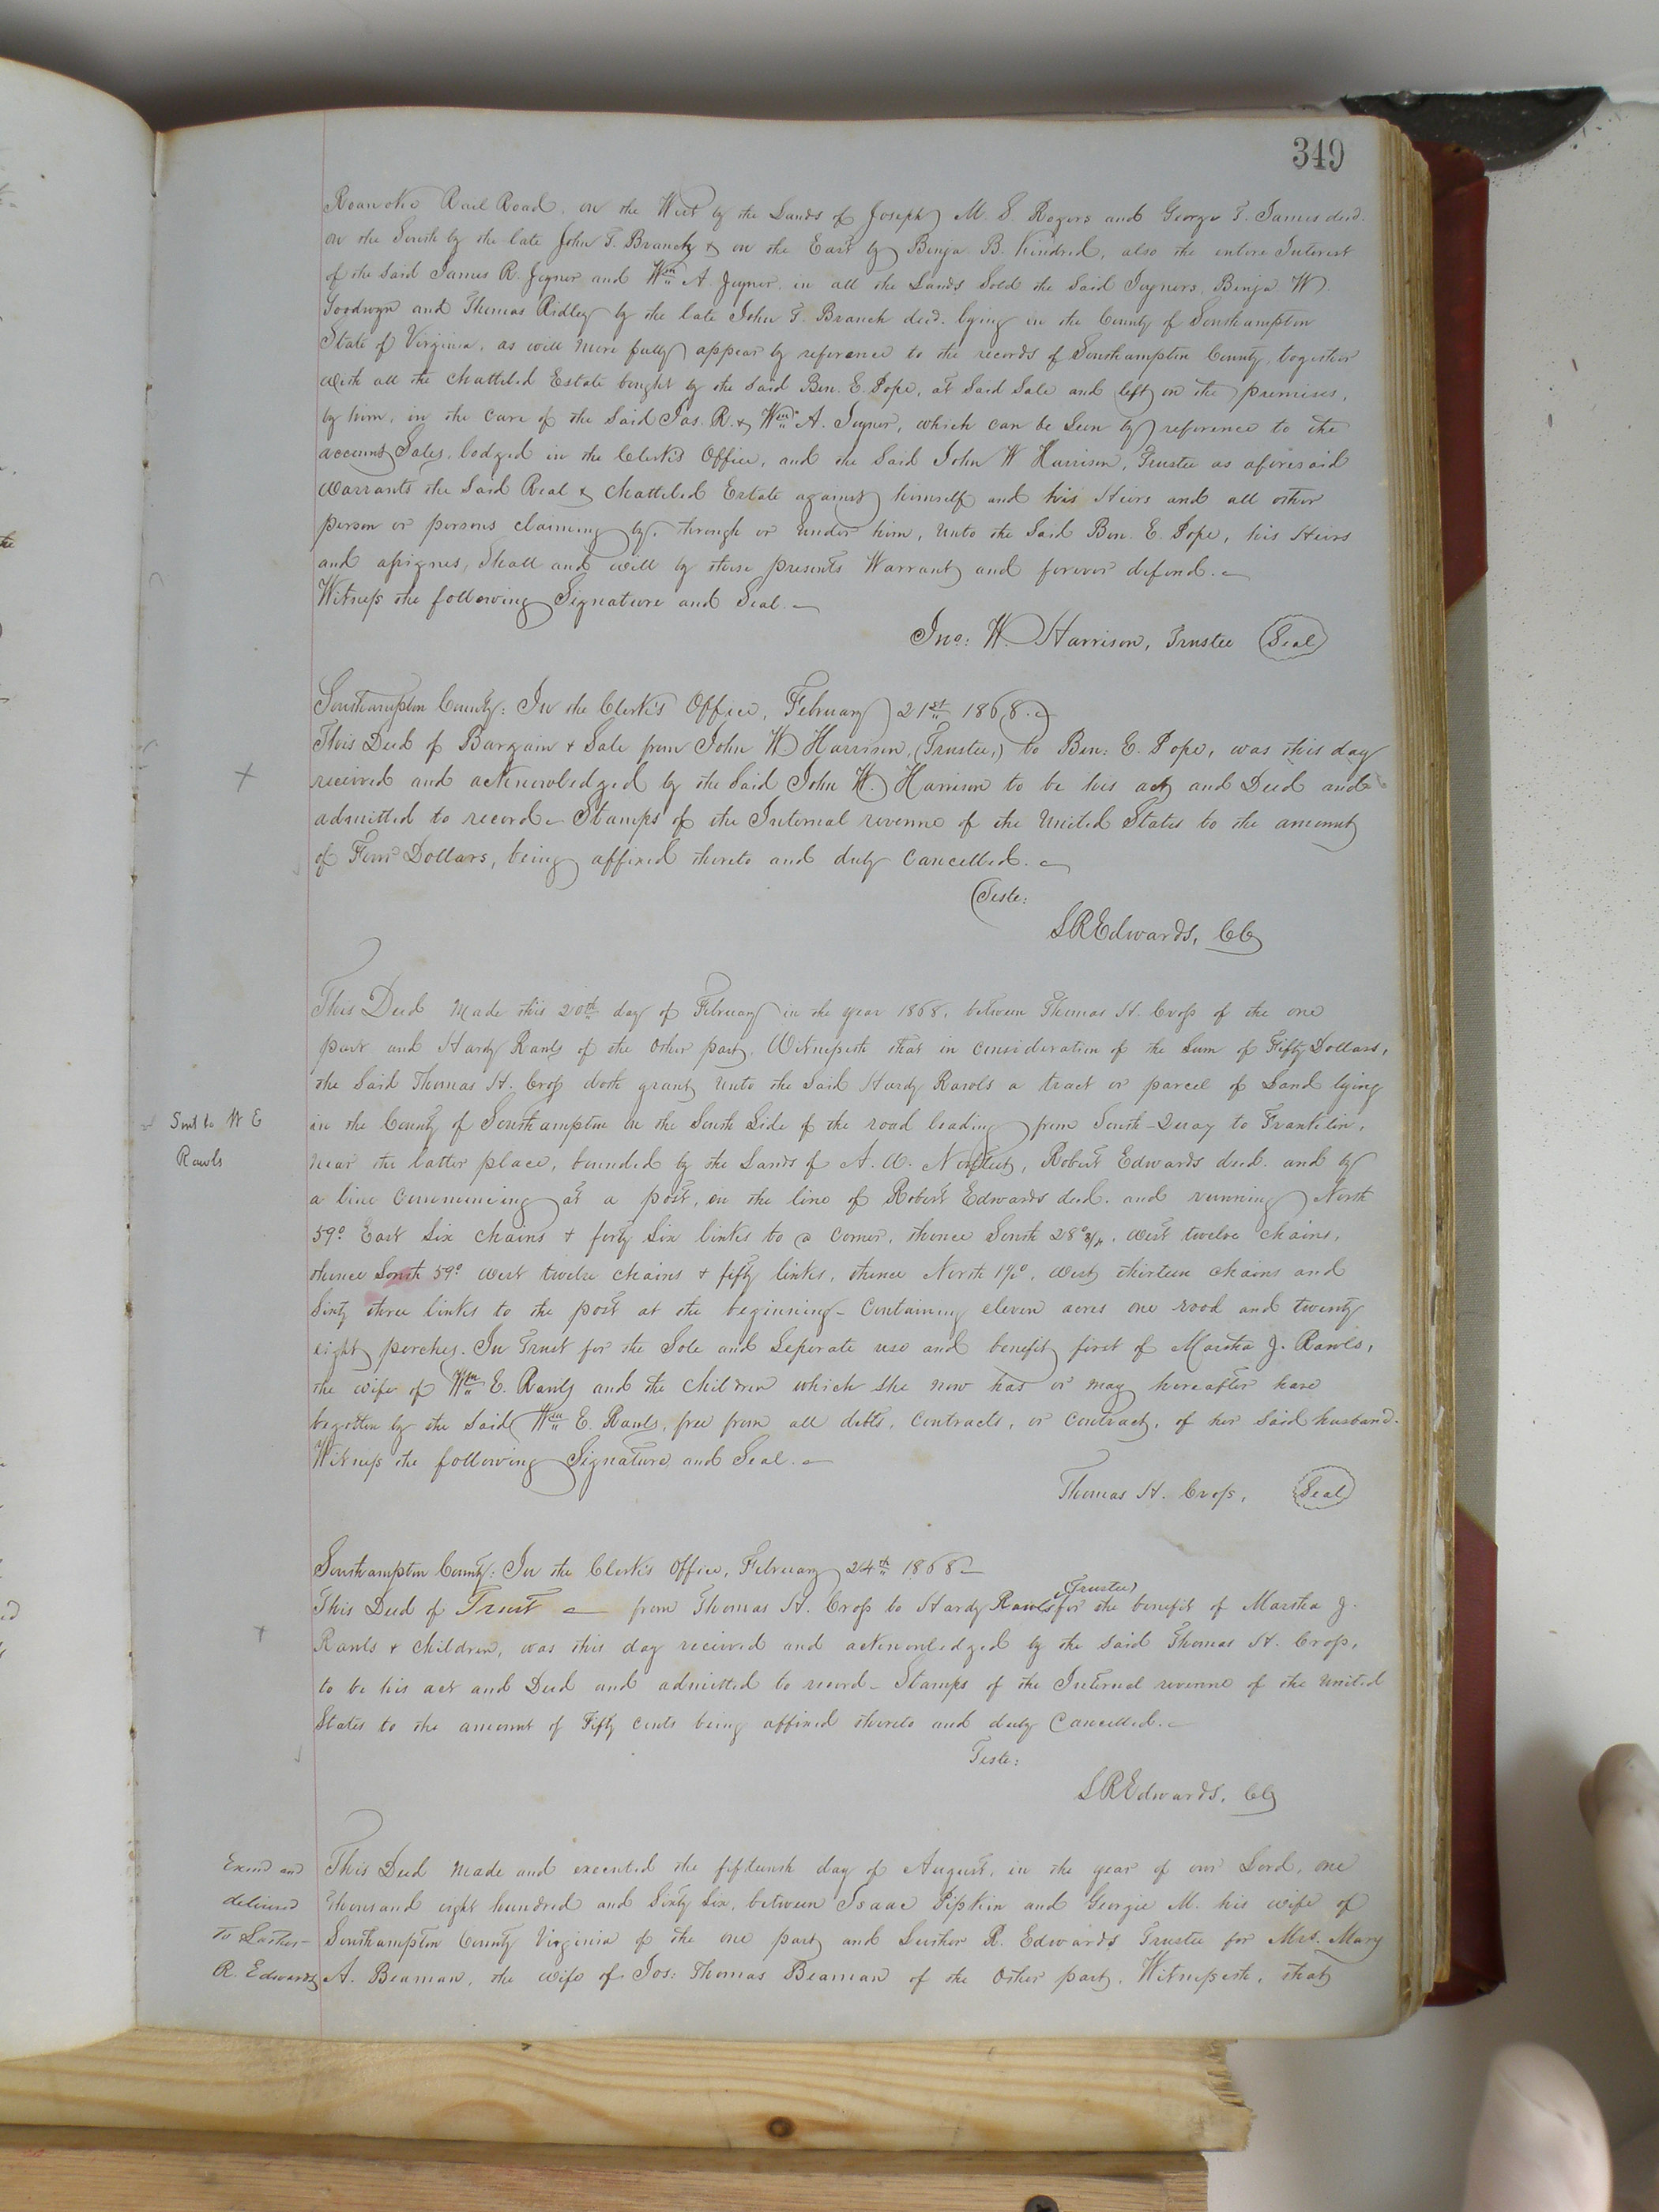 349
Roanoke Rail Road, on the West by the Lands of Joseph M. S. Rogers and George T. James decd.
on the South by the late John T. Branch & on the East by Benja. B. Kindred, also the entire Interest
of the said James R. Joyner and Wm A. Joyner, in all the Lands Sold the Said Joyners, Benja W.
Goodwyn and Thomas Ridley by the late John T. Branch decd. lying in the County of Southampton
State of Virginia, as will more fully appear by reference to the records of Southampton County, together
with all the chatteled Estate bought by the said Ben. E. Pope, at Said Sale and left on the premises,
by him, in the care of the Said Jas. R. & Wm A. Joyner, which can be Seen by reference to the
account Sales, lodged in the Clerk's Office, and the Said John W Harrison, Trustee as aforesaid
Warrants the Said Real & Chatteled Estate against himself and his Heirs and all other
person or persons claiming by, through or under him, Unto the Said Ben. E. Pope, his Heirs
and assignes, Shall and will by these presents Warrant and forever defend.
Witness the following Signature and Seal.
Jno: W. Harrison, Trustee Seal
Southampton County: In the Clerk's Office, February 21st 1868.
This Deed of Bargain & Sale from John W. Harrison, (Trustee,) to Ben: E. Pope, was this day
received and acknowledged by the Said John W. Harrison to be his act and Deed and
admitted to record - Stamps of the Internal revenue of the United States to the amount
of Four Dollars, being affixed thereto and duly Cancelled.
Teste:
LREdwards, CC
This Deed Made this 20th day of February in the year 1868, between Thomas H. Cross of the one
part and Hardy Rawls of the Other part, Witnesseth that in consideration of the Sum of Fifty Dollars,
the Said Thomas H. Cross doth grant Unto the Said Hardy Rawls a tract or parcel of Land lying
Sent to W E
Rawls
in the County of Southampton on the South Side of the road leading from South-Quay to Franklin,
near the latter place, bounded by the Lands of A. W. Norfleet, Robert Edwards decd. and by
a line Commencing at a post, on the line of Robert Edwards decd. and running North
59° East Six chains & forty Six links to a corner, thence South 28° 3/4, West twelve chains,
thence South 59° West twelve chains & fifty links, thence North 1½°, West thirteen chains and
Sixty three links to the post at the beginning - Containing eleven acres one rood and twenty
eight perches. In Trust for the Sole and Seperate use and benefit first of Martha J. Rawls,
the wife of Wm E. Rawls and the Children which She now has or may hereafter have
begotten by the Said Wm E. Rawls, free from all debts, Contracts, or Contract, of her Said husband.
Witness the following Signature and Seal.
Thomas H. Cross, Seal
Southampton County: In the Clerk's Office, February 24th 1868
This Deed of Trust from Thomas H. Cross to Hardy Rawls (Trustee) for the benefit of Martha J.
Rawls & Children, was this day recieved and acknowledged by the Said Thomas H. Cross,
to be his act and Deed and admitted to record - Stamps of the Internal revenue of the United
States to the amount of Fifty cents being affixed thereto and duly Cancelled.
Teste:
LREdwards, CC
Exmd and
delivered
To Luther
R. Edwards
This Deed Made and executed the fifteenth day of August, in the year of our Lord, one
thousand eight hundred and Sixty Six, between Isaac Pipkin and Georgie M. his wife of
Southampton County Virginia of the one part and Luther R. Edwards Trustee for Mrs. Mary
A. Beaman, the wife of Jos: Thomas Beaman of the Other part, Witnesseth, that